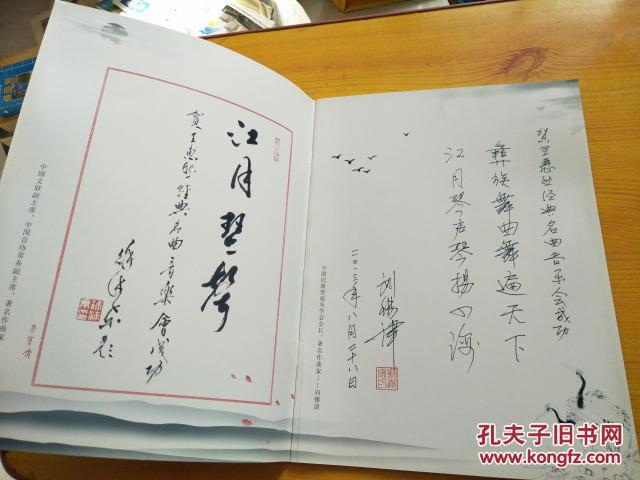 江月琴聲
贺王惠然经典名曲音樂會成功
徐沛东题
中国文联副主席、中国音协常务副主席、著名作曲家
贺王惠然经典名曲音乐会成功
彝族舞曲舞遍天下
江月琴声琴扬四海
刘锡津
二〇一三年八月二十八日
中国民族管弦乐学会会长、著名作曲家——刘锡津
孔夫子旧书网